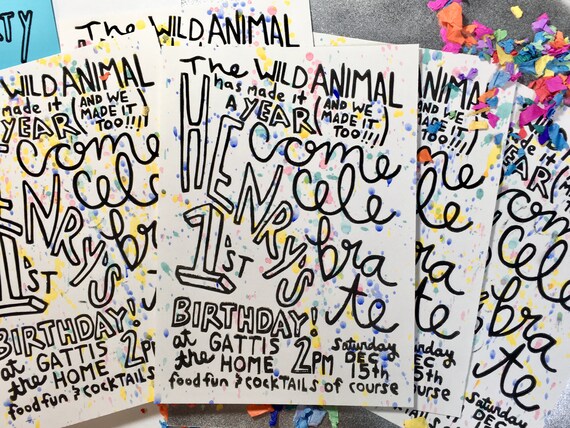 TY
The WILD ANIMAL
WILD ANIMAL
has made it
YEAR
(AND WE
MADE IT
TOO!!!!)
come
ENRY'S
1ST
BIRTHDAY!
at GATTIS
the HOME
2PM
food fun & COCKTAILS
The WILD ANIMAL
has made it
A YEAR
(AND WE
MADE IT
TOO!!!!)
come
cele
bra
te
HENRY'S
1ST
BIRTHDAY!
at GATTIS
the HOME
2PM
Saturday
DEC
15th
food fun & COCKTAILS of course
ANIMAL
(AND WE
MADE IT
TOO!!!!)
come
cele
bra
te
Saturday
DEC
15th
course
come
cele
bra
te
Saturday
DEC